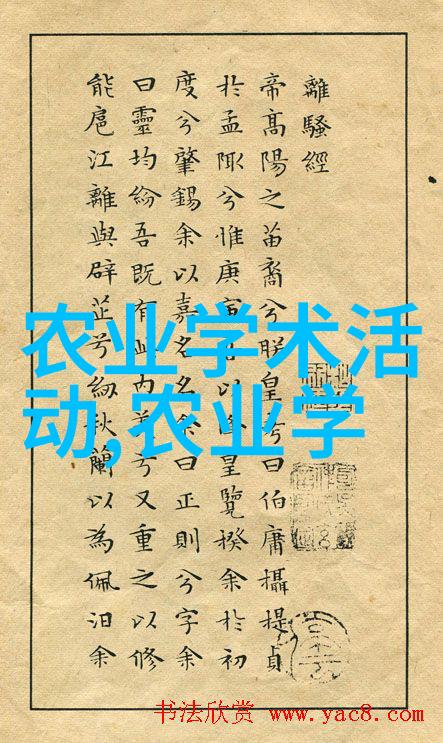 離騷經
帝高陽之苗裔兮朕皇考曰伯庸攝提貞
於孟陬兮惟庚寅吾以降皇覽揆余於初
度兮肇錫余以嘉名名余曰正則兮字余
曰靈均紛吾既有此內美兮又重之以修
能扈江離與辟芷兮紉秋蘭以為佩汨余
农业学术活
动,农业学
书法欣赏 www.yac8.com